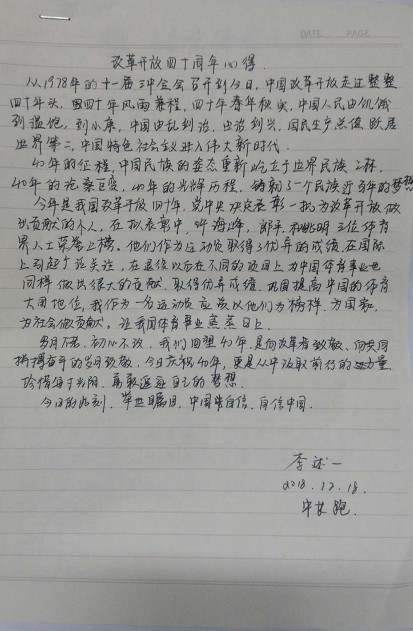 DATE PAGE
改革开放四十周年心得
从1978年的十一届三中全会召开到今日,中国改革开放走过整整
四十年头,四十年风雨兼程,四十年春华秋实,中国人民由饥饿
到温饱,到小康,中国由乱到治,由治到兴,国民生产总值跃居
世界第二,中国特色社会主义进入伟大新时代。
40年的征程,中国民族的姿态重新屹立于世界民族之林,
40年的沧桑巨变,40年的光辉历程,铸就了一个民族近百年的梦想
今年是我国改革开放四十年,党中央决定表彰一批为改革开放做
出贡献的个人,在拟表彰中,许海峰,郎平和姚明三位体育
界人士荣登上榜。他们作为运动员取得了优异的成绩,在国际
上引起广泛关注,在退役以后在不同的项目上为中国体育事业也
同样做出很大的贡献,取得优异成绩,巩固提高中国的体育
大国地位,我作为一名运动员应该以他们为榜样,为国家,
为社会做贡献。让我国体育事业蒸蒸日上。
岁月不居,初心不改,我们回望40年,是向改革者致敬、向共同
拼搏奋斗的岁月致敬,今日庆祝40年,更是从中汲取前行的力量
珍惜每寸光阴,勇敢追逐自己的梦想
今日的此刻,举世瞩目,中国自信,自信中国.
李述一
2018.12.18.
中长跑.